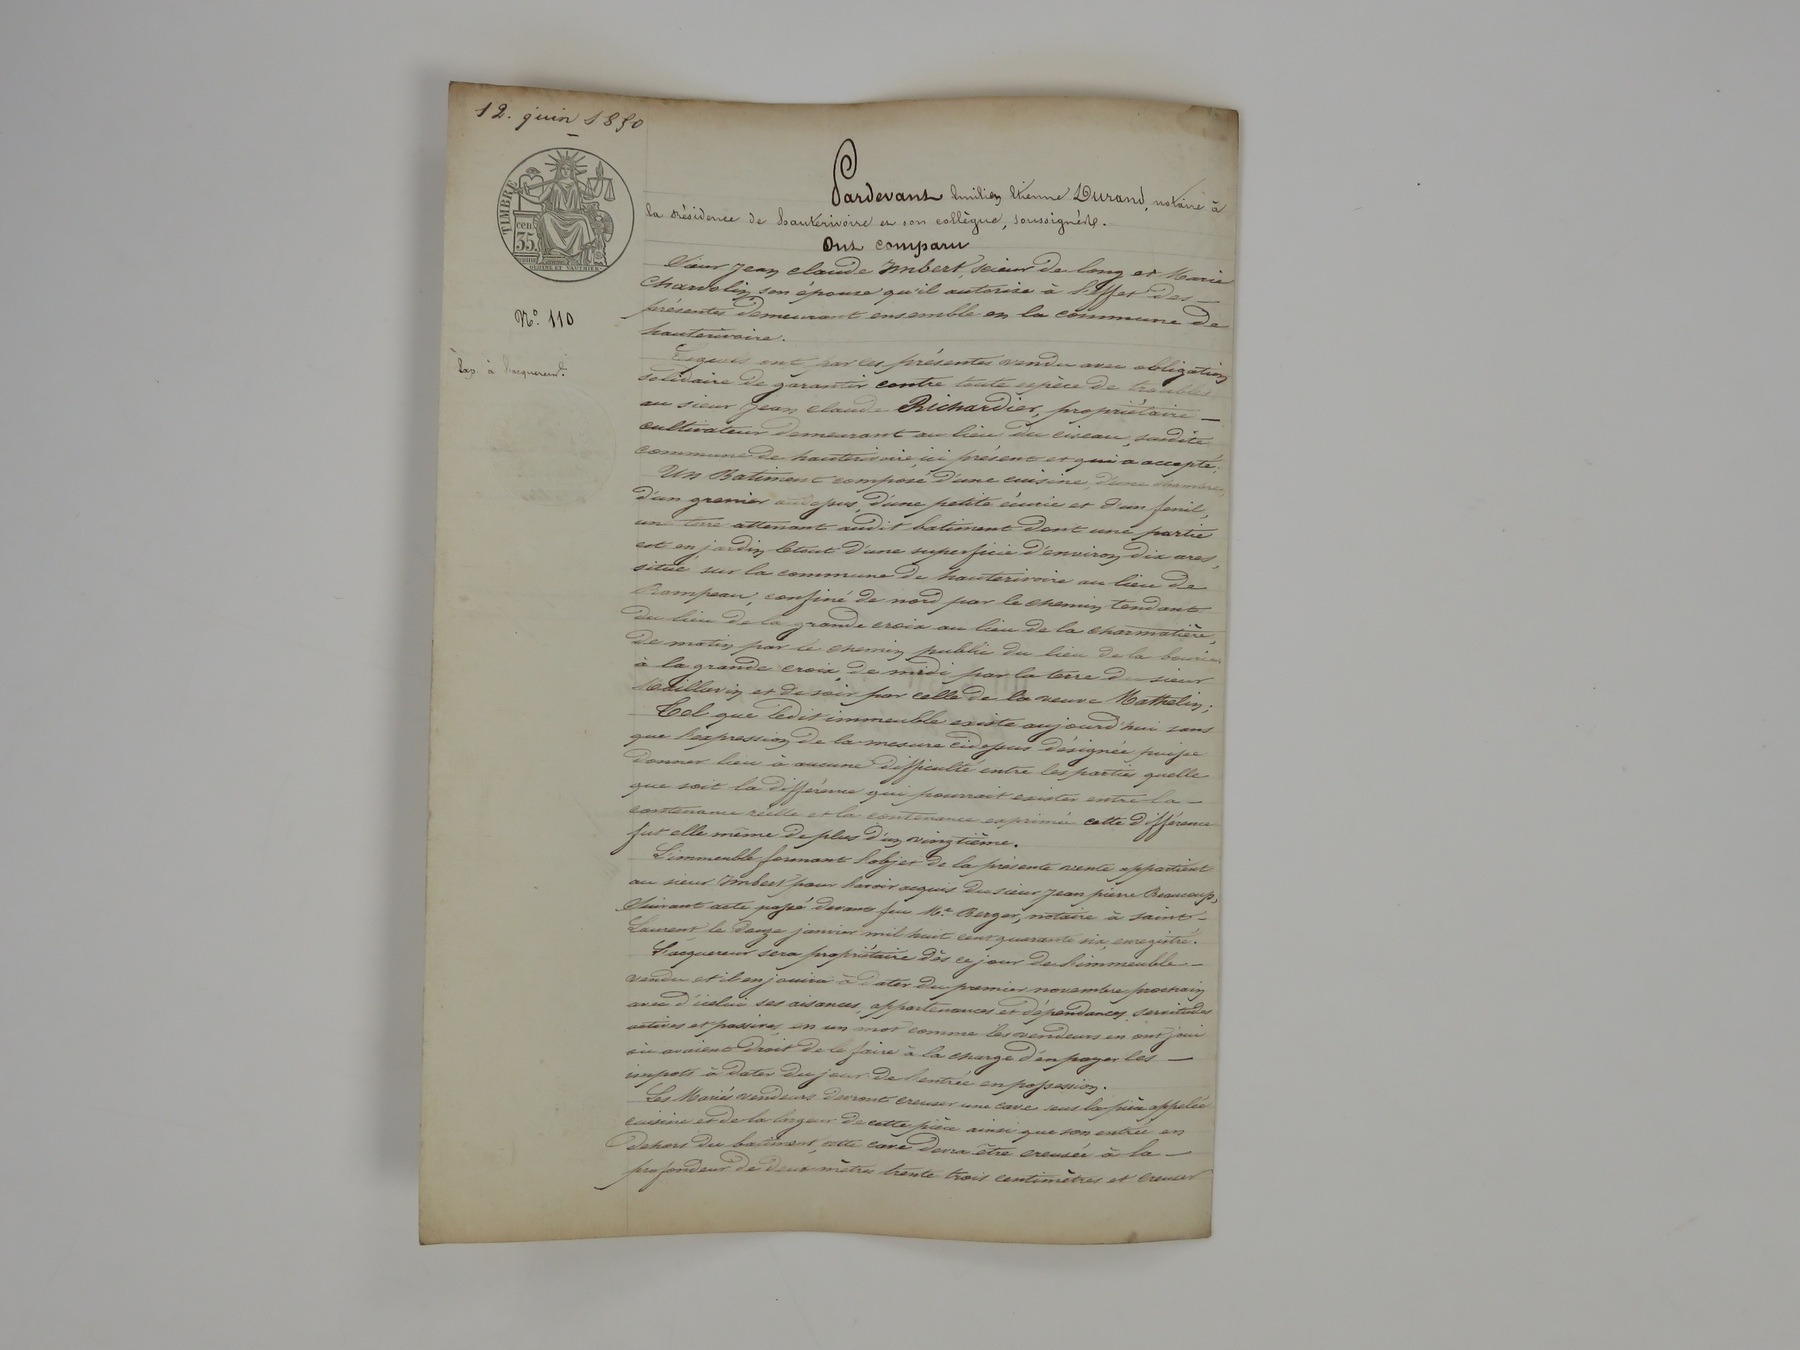 12. juin 1850
TIMBRE
cen.
35.
N.º 110
Exp. à l'acquéreur.
Pardevant Emilien Etienne Durand, notaire à
la résidence de hauterivoire et son collègue, soussignés.
Ont comparu
Sieur Jean claude Imbert, scieur de long et Marie
Charvolin son épouse qu'il autorise à l'effet des
présentes demeurant ensemble en la commune de
hauterivoire.
Lesquels ont par ces présentes vendu avec obligation
solidaire de garantir contre toute espèce de troubles
au sieur Jean claude Richardier, propriétaire
cultivateur demeurant au lieu du ciseau, susdite
commune de hauterivoire, ici présent et qui a accepté.
Un Batiment composé d'une cuisine, d'une chambre,
d'un grenier audessus, d'une petite écurie et d'un fenil,
une terre attenant audit batiment dont une partie
est en jardin letout d'une superficie d'environ dix ares,
situé sur la commune de hauterivoire au lieu de
confiné de nord par le chemin tendant
du lieu de la grande croix au lieu de la charmatière,
de matin par le chemin public du lieu de la
à la grande croix, de midi par la terre du sieur
et de soir par celle de la veuve Mathelin;
Tel que ledit immeuble existe aujourd'hui sans
que l'expression de la mesure cidessus désignée puisse
donner lieu à aucune difficulté entre les parties quelle
que soit la différence qui pourrait exister entre la
contenance réelle et la contenance exprimée cette différence
fut elle même de plus d'un vingtième.
L'immeuble formant l'objet de la présente vente appartient
au sieur Imbert pour l'avoir acquis du sieur Jean pierre Beaucoup,
suivant acte passé devant feu Me. Berger, notaire à saint
Laurent le douze janvier mil huit cent quarante six, enregistré.
L'acquereur sera propriétaire dès ce jour de l'immeuble
vendu et il en jouira à dater du premier novembre prochain
avec d'icelui ses aisances, appartenances et dépendances, servitudes
actives et passives, en un mot comme les vendeurs en ont joui
ou avaient droit de le faire à la charge d'en payer les
impots à dater du jour de l'entrée en possession.
Les Mariés vendeurs devront creuser une cave sous la pièce appelée
cuisine et de la largeur de cette pièce ainsi que son entrée en
dehors du batiment, cette cave devra être creusée à la
profondeur de deux mètres trente trois centimètres et creuser